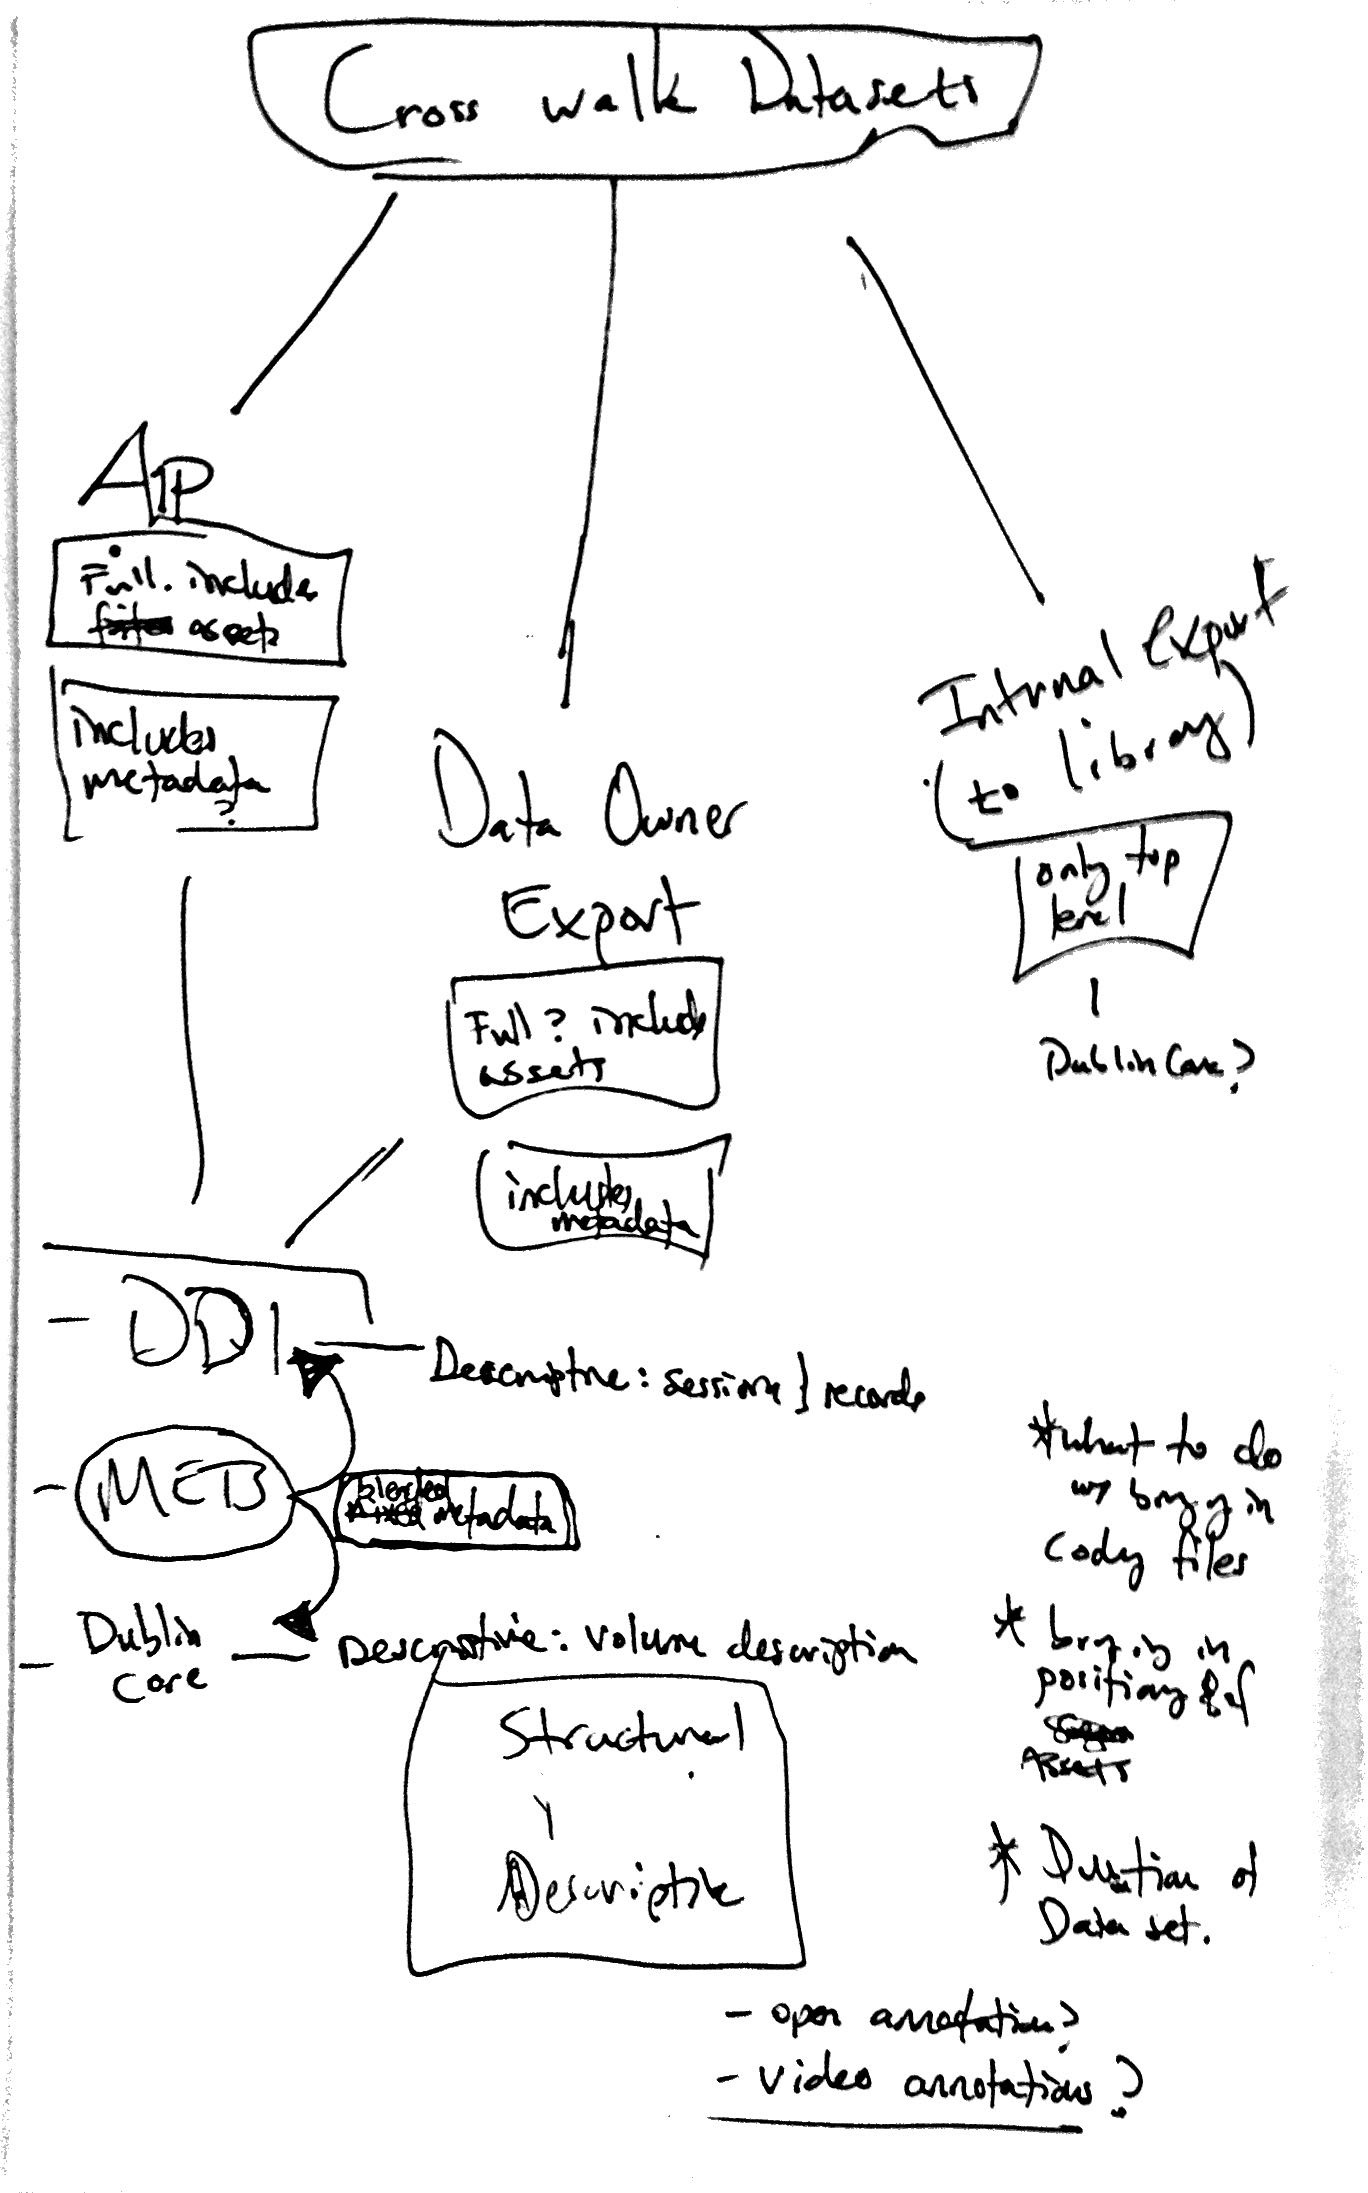 Cross walk Datasets
AIP
Full. include
assets
includes
metadata
?
Data Owner
Export
Full ? include
assets
includes
metadata
Internal Export
(to library)
only top
level
Dublin Core?
- DDI
Descriptive: sessions } records
- METS
blended
metadata
- Dublin
core
Descriptive: volume description
Structural
Descriptive
* what to do
w/ bringing in
coding files
* bringing in
positioning of
Assets
* Duration of
Data set.
- open annotation?
- video annotations?